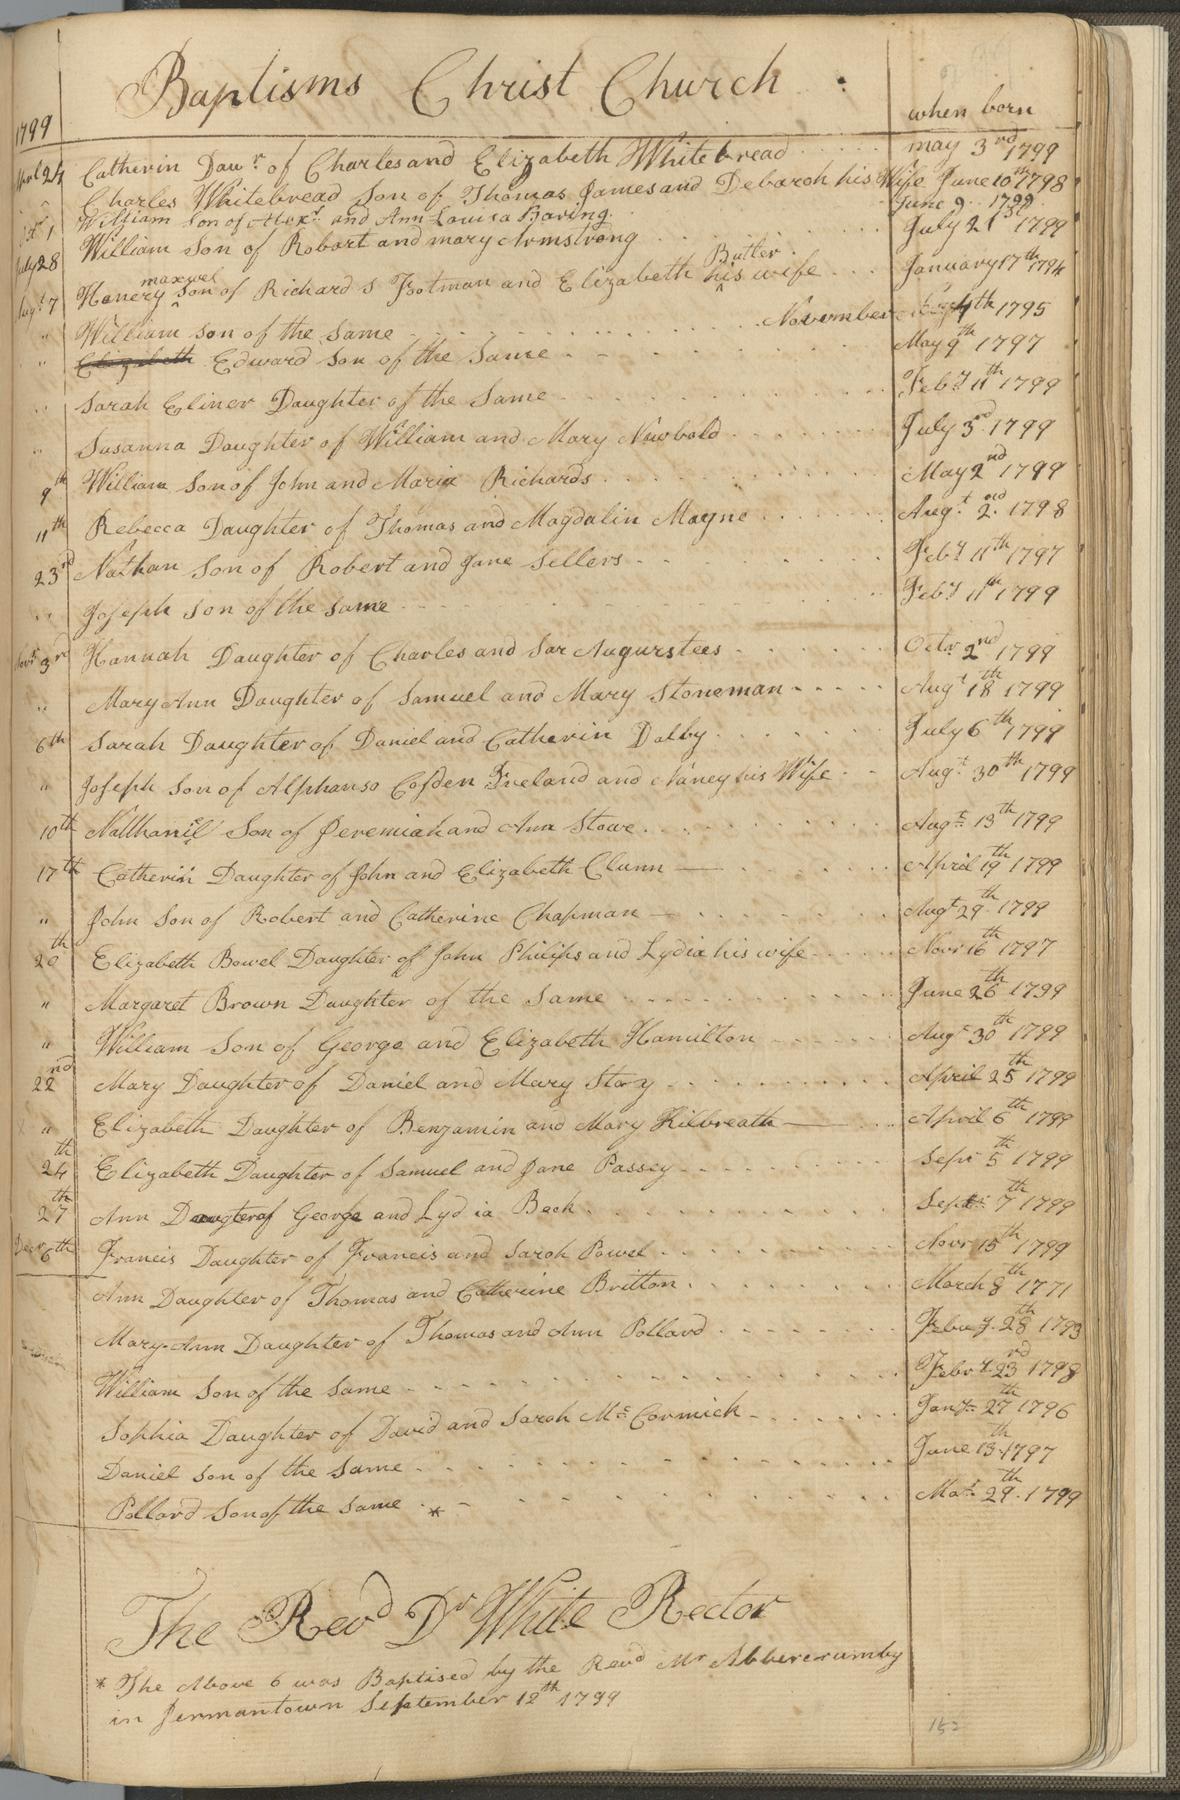 Baptisms Christ Church
1799 when born
April 24 Catherin Dawr. of Charles and Elizabeth Whitebread may 3rd 1799
Charles Whitebread Son of Thomas James and Deborah his Wife June 10th 1798
1 William Son of Alexr. and Ann Louisa Baring. June 9 1799
July 28 William Son of Robert and mary Armstrong July 21st 1799
Augt 7 Henery maxwel Son of Richard S Footman and Elizabeth Butler his wife January 17th 1794
" William son of the Same November 4th 1795
" Elizabeth Edward Son of the Same May 9th 1797
" Sarah Elinor Daughter of the Same Feby 11th 1799
" Susanna Daughter of William and Mary Newbold July 3rd 1799
9th William Son of John and Maria Richards May 2nd 1799
11th Rebecca Daughter of Thomas and Magdalin Mayne Augt. 2nd. 1798
23rd Nathan Son of Robert and Jane Sellers Feby 11th 1797
" Joseph Son of the same Feby 11th 1799
Novr 3rd Hannah Daughter of Charles and Sar Augurstees Octr 2nd 1799
" Mary Ann Daughter of Samuel and Mary Stoneman Augt 18th 1799
6th Sarah Daughter of Daniel and Catherin Dalby July 6th 1799
" Joseph Son of Alphanso Cosden Ireland and Nancy his Wife Augt. 30th 1799
10th Nathaniel Son of Jeremiah and Ann Stowe Augt 13th 1799
17th Catherin Daughter of John and Elizabeth Clunn April 19th 1799
" John Son of Robert and Catherine Chapman Augt 29th 1799
20th Elizabeth Bowel Daughter of John Philips and Lydia his wife Novr 16th 1797
" Margaret Brown Daughter of the Same June 26th 1799
" William Son of George and Elizabeth Hamilton Augt 30th 1799
22nd Mary Daughter of Daniel and Mary Stoy April 25th 1799
" Elizabeth Daughter of Benjamin and Mary Kilbreath April 6th 1799
24th Elizabeth Daughter of Samuel and Jane Passey Sepr 5th 1799
27th Ann Daugter of George and Lydia Beck Sept. 7th 1799
Decr 6th Francis Daughter of Francis and Sarah Powel Novr 15th 1799
Ann Daughter of Thomas and Catherine Britton March 8th 1771
Mary Ann Daughter of Thomas and Ann Pollard Febuy. 28th 1793
William Son of the Same Febry. 23rd 1798
Sophia Daughter of David and Sarah Mc Cormick Jany. 27th 1796
Daniel Son of the Same June 13th 1797
Pollard Son of the Same * 29th. 1799
The Revd Dr White Rector
* The Above 6 was Baptised by the Revd Mr Abbercrumby
in Jermantown September 12th 1799
152